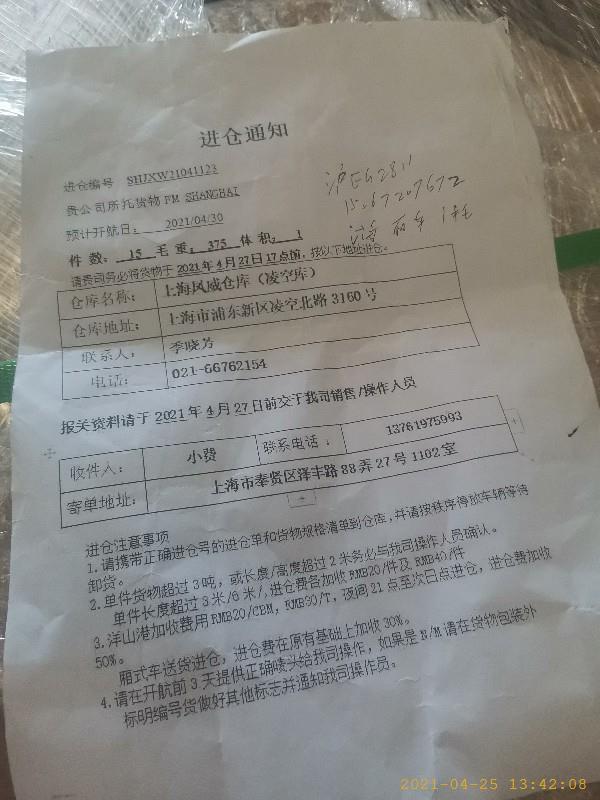 进仓通知
进仓编号 SHJXW21041123
贵公司所托货物 FM SHANGHAI
预计开航日: 2021/04/30
件 数: 15 毛 重: 375 体 积: 1
请贵司务必将货物于 2021年4月27日17点前, 按以下地址进仓。
仓库名称: 上海风威仓库（凌空库）
仓库地址: 上海市浦东新区凌空北路 3160 号
联系人: 季晓芳
电话: 021-66762154
沪EG2811
15267209672
报关资料请于 2021年4月27日前交于我司销售/操作人员
收件人: 小费 联系电话: 13761975993
寄单地址: 上海市奉贤区泽丰路88弄27号1102室
进仓注意事项
1.请携带正确进仓号的进仓单和货物规格清单到仓库，并请按秩序停放车辆等待
卸货。
2.单件货物超过3吨，或长度/高度超过2米务必与我司操作人员确认。
单件长度超过3米/6米/,进仓费各加收RMB20/件及RMB40/件
3.洋山港加收费用RMB20/CBM, RMB30/T, 夜间21点至次日点进仓，进仓费加收
50%。
厢式车送货进仓，进仓费在原有基础上加收30%。
4.请在开航前3天提供正确唛头给我司操作，如果是N/M请在货物包装外
标明编号货做好其他标志并通知我司操作员。
2021-04-25 13:42:08